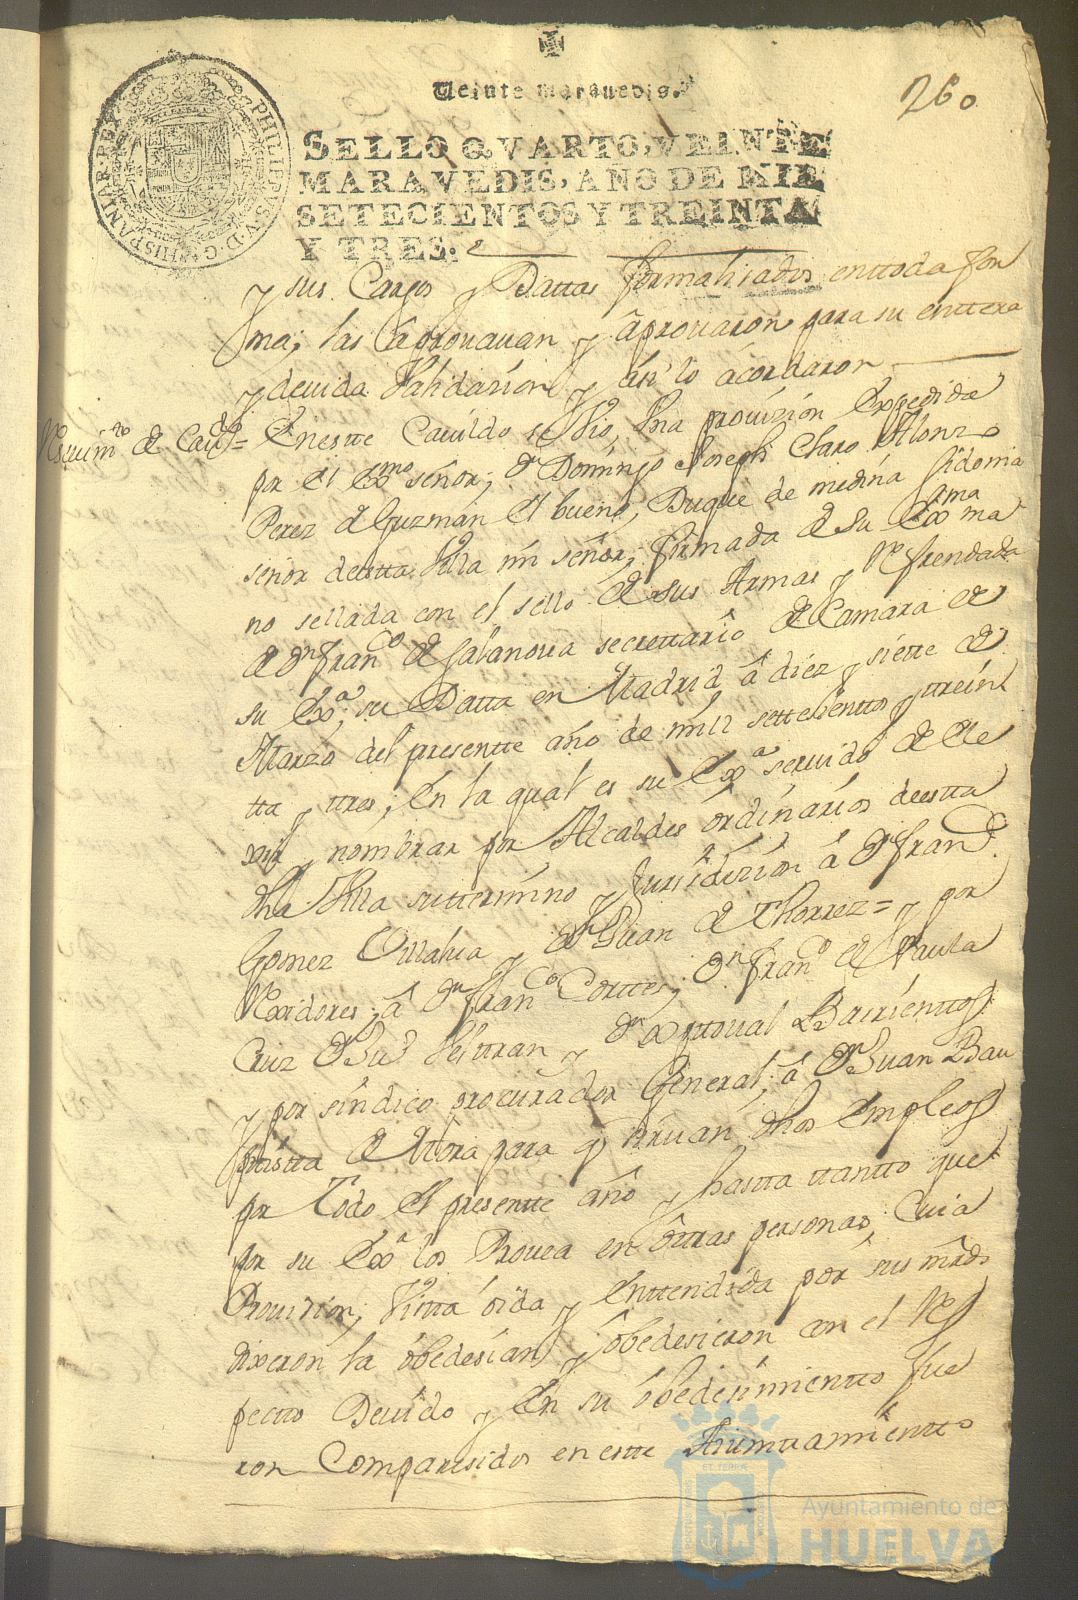 260
Veinte maravedis.
SELLO QVARTO, VEINTE
MARAVEDIS, AÑO DE MIL
SETECIENTOS Y TREINTA
Y TRES.
PHILIPPUS V D G HISPANIAR REX
y sus Cargos y Dattas formalisados enttoda for
ma; las aprouauan y aprouaron para su enttera
y deuida Validazion y asi lo acordaron
Reseuimto de Caudo = En estte Cauildo se vio, Vna prouizion Expedida
por el Exmo señor; Dn Domingo Joseph Claro Alonzo
Perez de Guzman el bueno, Duque de medina sidonia
señor desta Villa mi señor; firmada de su Exma ma
no sellada con el sello de sus Armas y Refrendada
de Dn Franco de Salanova secrettario de Camara de
su Exa; su Datta en Madrid â diez y siette de
Marzo del presentte año de mill settesientos y trein
tta y ttres; En la qual es su Exa seruido de Ele
xir y nombrar por Alcaldes ordinarios deestta
dha Villa suttermino y Jurisdizion â Dn Franco
Gomez y Dn Juan de Thorrez = y por
Rexidores; â Dn Franco Corttes; Dn Franco de Paula
Cruz Dn Beltran y Dn Xptoual Barrienttos
y por sindico procurador General; â Dn Juan Bau
ptistta de Mora para q siruan dhos Empleos
por Todo el presentte año y hastta ttantto que
por su Exa los Prouea en ottras personas; Cuia
Prouizion; Vistta oida y Enttendida por sus mrds
dixeron la obedesian y obedesieron con el Res
pectto Deuido y En su obedesimientto fue
ron Comparesidos en estte Aiunttamientto
Ayuntamiento de
HUELVA